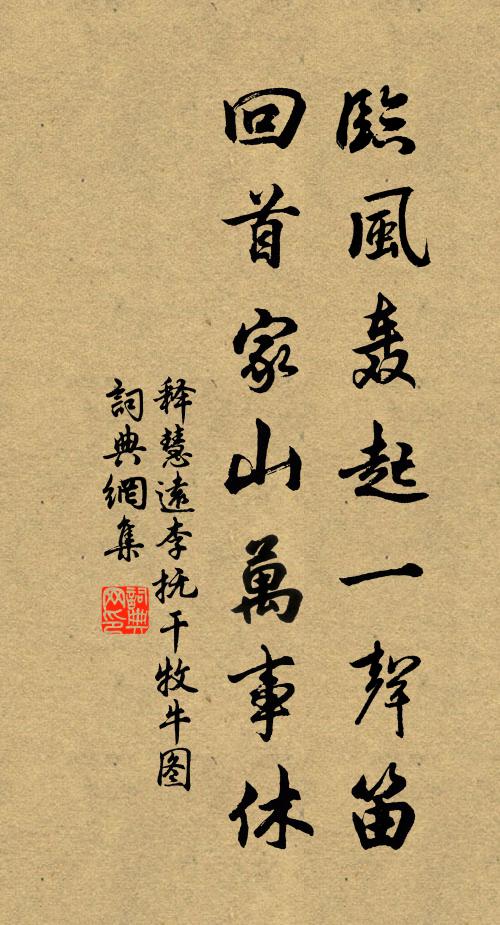 臨風轰起一聲笛
回首家山萬事休
释慧遠李抚干牧牛图
詞典網集
詞典網印